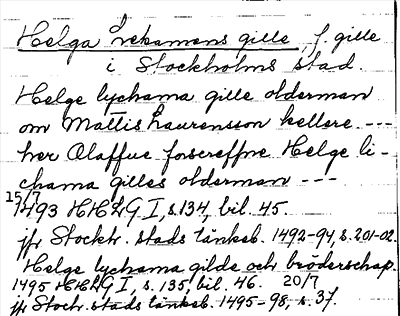 Helga Lekamens gille, f. gille
i Stockholms stad.
Helge lychama gille olderman
om Mattis Laurensson kellere ---
her Olaffue forscreffne Helge li-
chama gilles olderman ---
15/7
1493 HHLG I, s. 134, bil. 45.
jfr Stockh. stads tänkeb. 1492-94, s. 201-02.
Helge lychama gilde och bröderschap.
1495 HHLG I, s. 135, bil. 46. 20/7
jfr Stoch. stads tänkeb. 1495-98, s. 37.